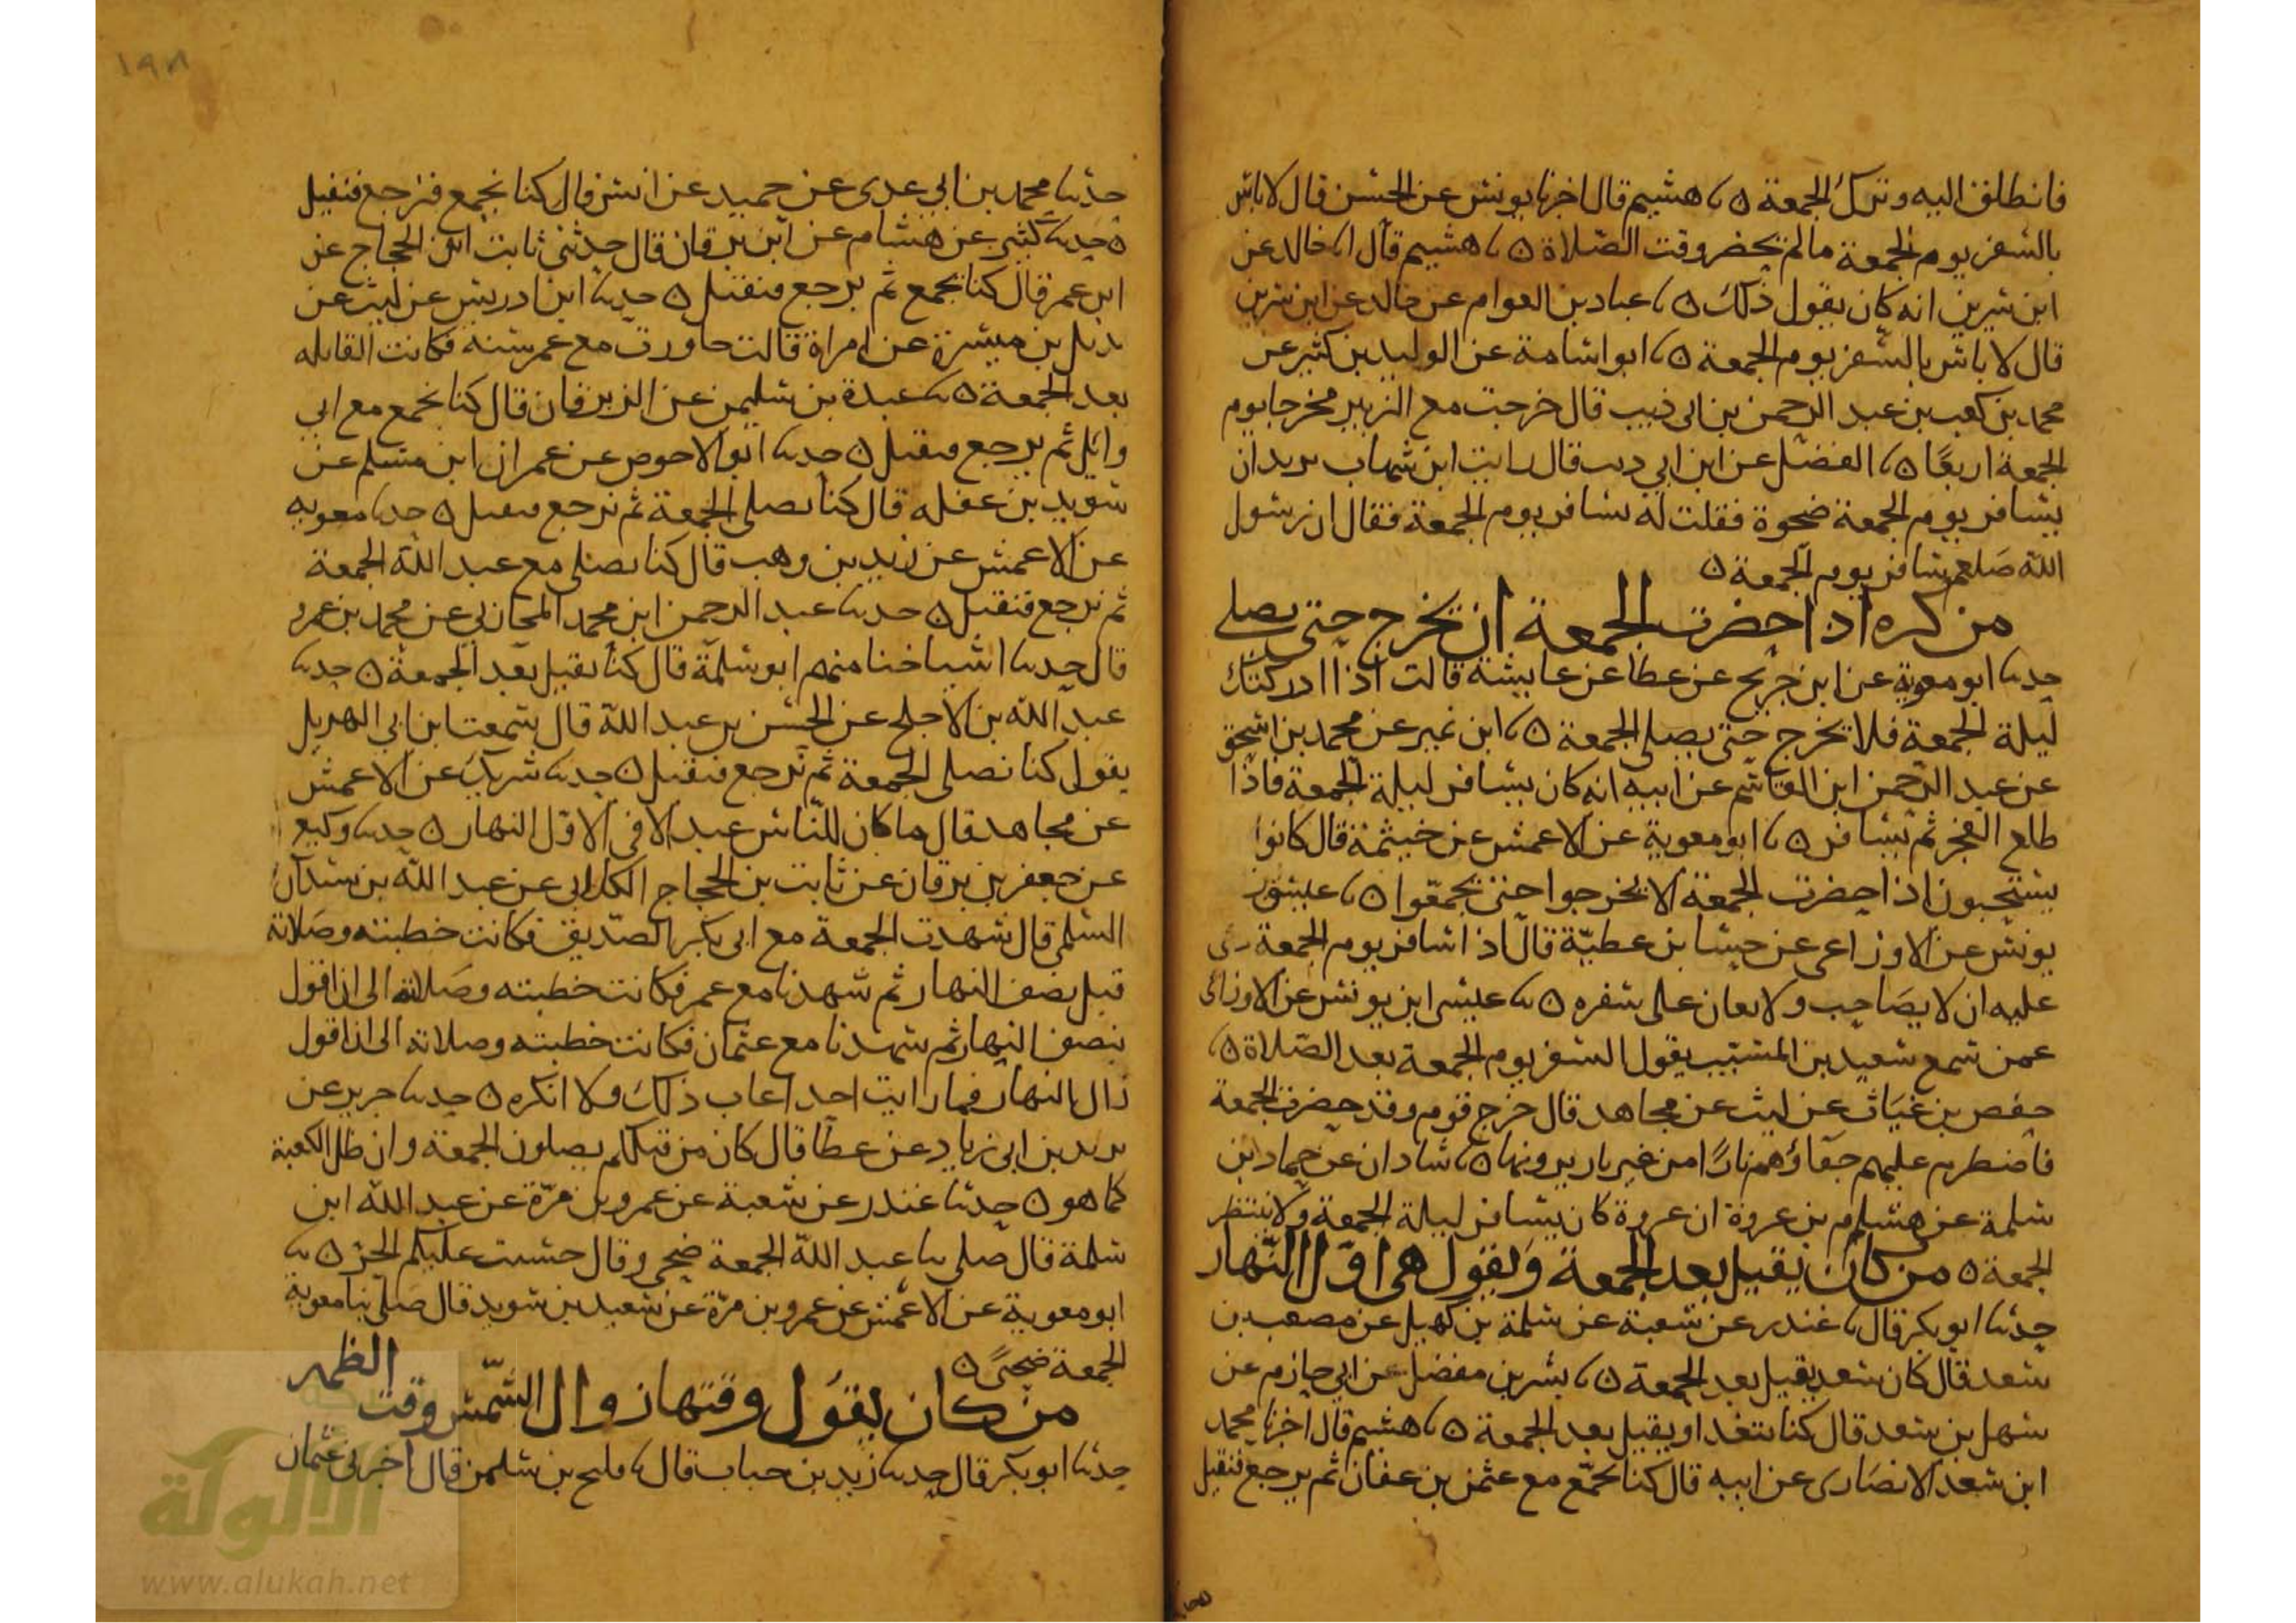 فانطلق اليه وترك الجمعة ه نا هشيم قال اخبرنا يونس عن الحسن قال لا باس
بالسفر يوم الجمعة مالم يحضر وقت الصلاة ه نا هشيم قال انا خالد عن
ابن سيرين انه كان يقول ذلك ه نا عباد بن العوام عن خالد عن ابن سيرين
قال لا باس بالسفر يوم الجمعة ه نا ابو اسامة عن الوليد بن كثير عن
محمد بن كعب بن عبد الرحمن بن ابي ذيب قال خرجت مع الزبير مخرجا يوم
الجمعة اربعا ه نا الفضل عن ابن ابي ديب قال رايت ابن شهاب يريد ان
يسافر يوم الجمعة ضحوة فقلت له تسافر يوم الجمعة فقال ان رسول
الله صلعم سافر يوم الجمعة ه
من كره اذا حضرت الجمعة ان يخرج حتى يصلي
حدثنا ابو معوية عن ابن جريج عن عطا عن عايشة قالت اذا ادركتك
ليلة الجمعة فلا تخرج حتى تصلي الجمعة ه نا ابن نمير عن محمد بن اسحق
عن عبد الرحمن ابن القاسم عن ابيه انه كان يسافر ليلة الجمعة فاذا
طلع الفجر ثم يسافر ه نا ابو معوية عن الاعمش عن خيثمة قال كانوا
يستحبون اذا حضرت الجمعة الا يخرجوا حتى يجمعوا ه نا عيسى بن
يونس عن الاوزاعي عن حسا بن عطية قال اذا سافر يوم الجمعة دعي
عليه ان لا يصاحب ولا يعان على سفره ه نا عيسى ابن يونس عن الاوزاعي
عمن سمع سعيد بن المسيب يقول السفر يوم الجمعة بعد الصلاة ه نا
حفص بن غياث عن ليث عن مجاهد قال خرج قوم وقد حضرت الجمعة
فاضطرم عليهم خباؤهم نارا من غير نار يرونها ه نا شاذان عن حماد ابن
سلمة عن هشام بن عروة ان عروة كان يسافر ليلة الجمعة ولا ينتظر
الجمعة ه من كان يقيل بعد الجمعة ويقول هي اول النهار
حدثنا ابو بكر قال نا غندر عن شعبة عن سلمة بن كهيل عن مصعب بن
سعد قال كان سعد يقيل بعد الجمعة ه نا بشر بن مفضل عن ابي حازم عن
سهل بن سعد قال كنا نتغدا ونقيل بعد الجمعة ه نا هشيم قال اخبرنا محمد
ابن سعد الانصاري عن ابيه قال كنا نجمع مع عثمن بن عفان ثم نرجع فنقيل
١٩٨
حدثنا محمد بن ابي عدي عن حميد عن انس قال كنا نجمع فنرجع فنقيل
ه حدثنا كثير عن هشام عن ابن برقان قال حدثني ثابت ابن الحجاج عن
ابن عمر قال كنا نجمع ثم نرجع فنقيل ه حدثنا ابن ادريس عن ليث عن
بديل بن ميسرة عن امراة قالت جاورت مع عمر سنة فكانت القايلة
بعد الجمعة ه نا عبدة بن سليمن عن الزبرقان قال كنا نجمع مع ابي
وايل ثم نرجع فنقيل ه حدثنا ابو الاحوص عن عمران ابن مسلم عن
سويد بن غفلة قال كنا نصلي الجمعة ثم نرجع فنقيل ه حدثنا معوية
عن الاعمش عن زيد بن وهب قال كنا نصلي مع عبد الله الجمعة
ثم نرجع فنقيل ه حدثنا عبد الرحمن ابن محمد المحاربي عن محمد بن عمرو
قال حدثنا اشياخنا منهم ابو سلمة قال كنا نقيل بعد الجمعة ه حدثنا
عبد الله بن الاجلح عن الحسن بن عبد الله قال سمعت ابن ابي الهذيل
يقول كنا نصلي الجمعة ثم نرجع فنقيل ه حدثنا شريك عن الاعمش
عن مجاهد قال ما كان للناس عيد الا في الاول النهار ه حدثنا وكيع
عن جعفر بن برقان عن ثابت بن الحجاج الكلابي عن عبد الله بن سيدان
السلمي قال شهدت الجمعة مع ابي بكر الصديق فكانت خطبته وصلاته
قبل نصف النهار ثم شهدنا مع عمر فكانت خطبته وصلاته الى ان اقول
نصف النهار ثم شهدنا مع عثمان فكانت خطبته وصلاته الى ان اقول
زال النهار فما رايت احدا عاب ذلك ولا انكره ه حدثنا جرير عن
يزيد بن ابي زياد عن عطا قال كان من قبلكم يصلون الجمعة وان ظل الكعبة
كما هو ه حدثنا غندر عن شعبة عن عمرو بن مرة عن عبد الله ابن
سلمة قال صلى بنا عبد الله الجمعة ضحى وقال خشيت عليكم الحر ه نا
ابو معوية عن الاعمش عن عمرو بن مرة عن سعيد بن سويد قال صلى بنا معوية
الجمعة ضحى ه
من كان يقول وقتها زوال الشمس وقت الظهر
حدثنا ابو بكر قال حدثنا زيد بن حباب قال نا فليح بن سليمن قال اخبرني عثمان
الألوكة
www.alukah.net